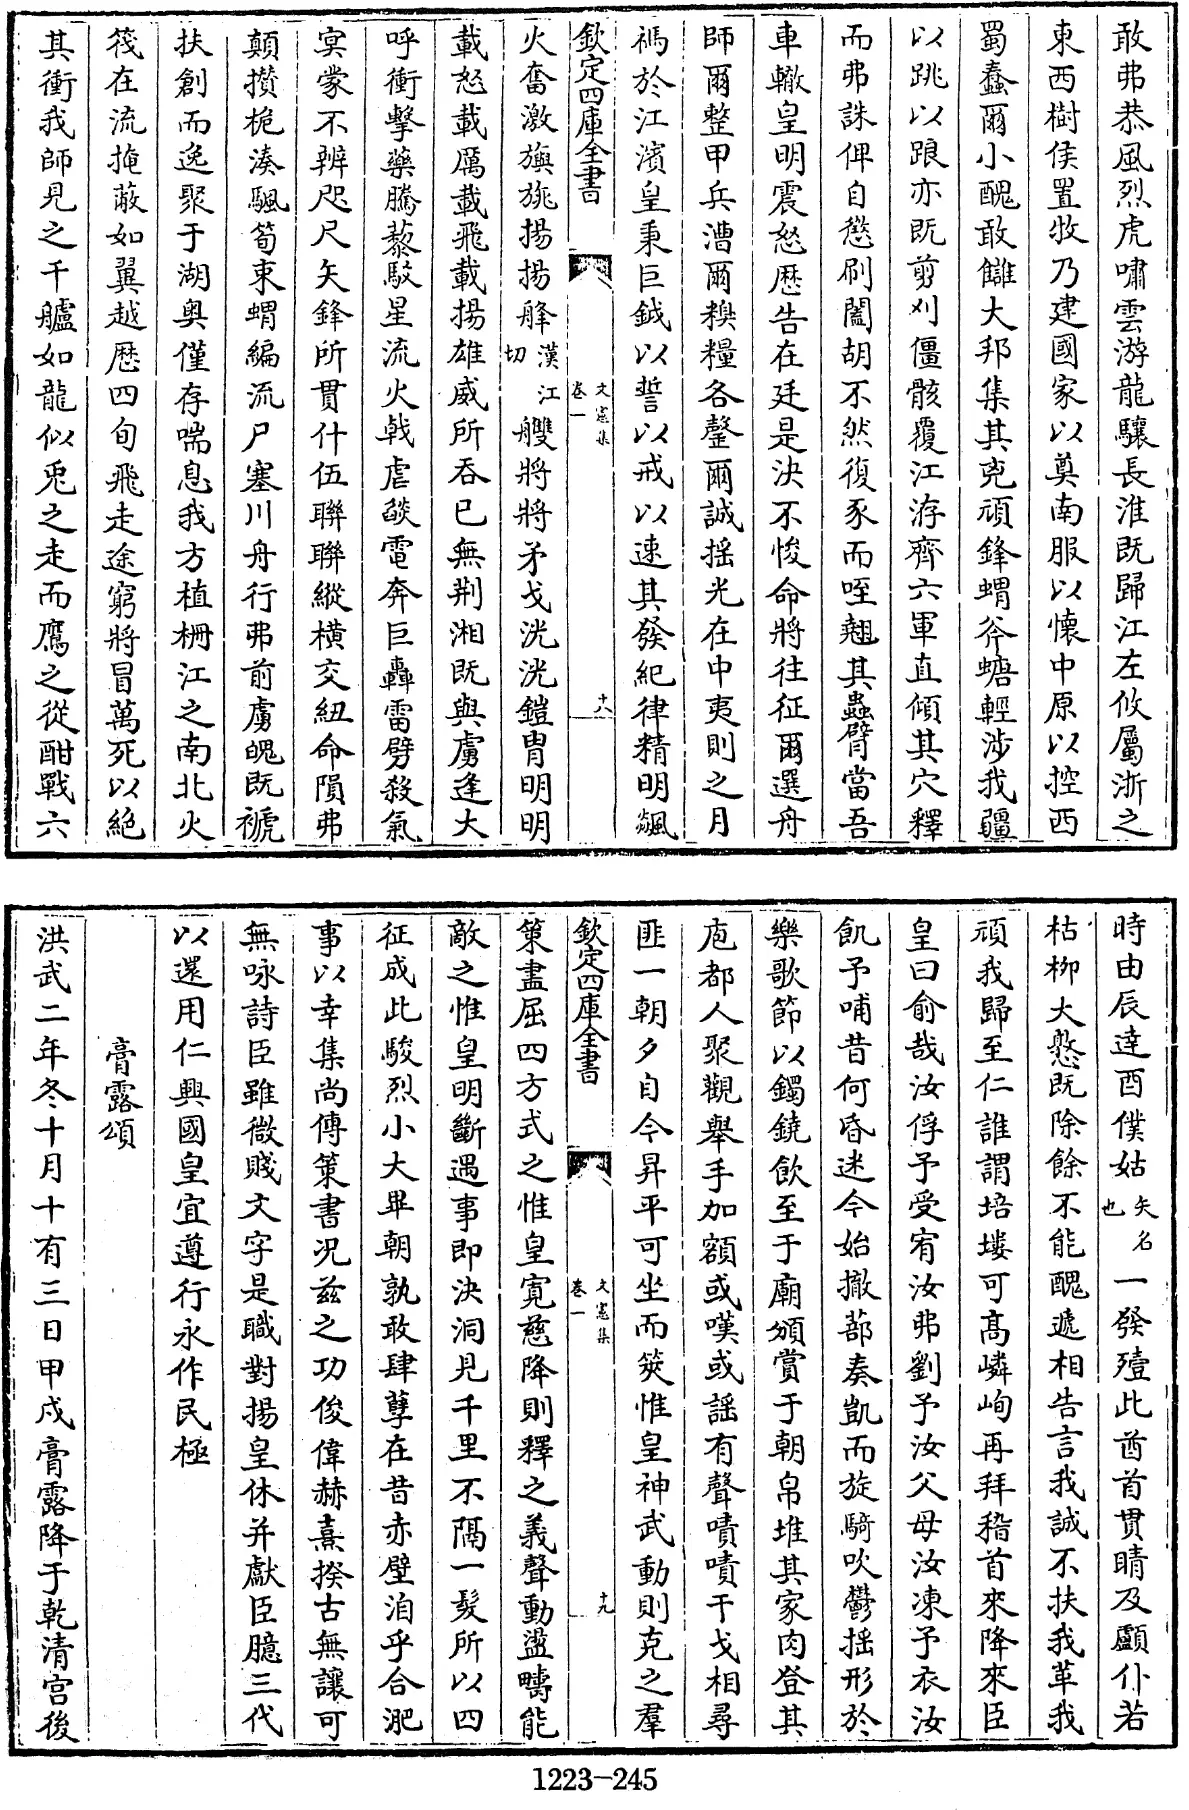 敢弗恭風烈虎嘯雲游龍驤長淮既歸江左攸屬浙之
東西樹侯置牧乃建國家以奠南服以懷中原以控西
蜀蠢爾小醜敢讎大邦集其兇頑鋒蝟斧螗輕涉我疆
以跳以踉亦既剪刈僵骸覆江洊齊六軍直傾其穴釋
而弗誅俾自愆刷闔胡不然復豕而咥翹其蟲臂當吾
車轍皇明震怒歷告在廷是決不悛命將往征爾選舟
師爾整甲兵漕爾糗糧各罄爾誠揺光在中夷則之月
禡於江濱皇秉巨鉞以誓以戒以速其發紀律精明飈
欽定四庫全書
文憲集
卷一
十八
火奮激旟旐揚揚舽漢江切艭將將矛戈洸洸鎧胄明明
載怒載厲載飛載揚雄威所吞已無荆湘既與虜逢大
呼衝擊藥騰藜駮星流火戟虐燄電奔巨轟雷劈殺氣
㝠蒙不辨咫尺矢鋒所貫什伍聯聯縱横交紐命隕弗
顛攅桅湊颿筍束蝟編流尸塞川舟行弗前虜魄既褫
扶創而逸聚于湖奥僅存喘息我方植柵江之南北火
筏在流掩蔽如翼越歴四旬飛走途窮將冒萬死以絶
其衝我師見之千艫如龍似兎之走而鷹之從酣戰六
時由辰達酉僕姑矢名也一發殪此酋首貫睛及顱仆若
枯柳大憝既除餘不能醜遞相告言我誠不扶我革我
頑我歸至仁誰謂培塿可髙嶙峋再拜稽首來降來臣
皇曰俞哉汝俘予受宥汝弗劉予汝父母汝凍予衣汝
飢予哺昔何昏迷今始撤蔀奏凱而旋騎吹鬱揺形於
樂歌節以鐲鐃飲至于廟頒賞于朝帛堆其家肉登其
庖都人聚觀舉手加額或嘆或謡有聲嘖嘖干戈相尋
匪一朝夕自今昇平可坐而筴惟皇神武動則克之羣
欽定四庫全書
文憲集
卷一
十九
策畫屈四方式之惟皇寛慈降則釋之義聲動盪疇能
敵之惟皇明斷遇事即決洞見千里不隔一髮所以四
征成此駿烈小大畢朝孰敢肆孽在昔赤壁洎乎合淝
事以幸集尚傳策書况兹之功俊偉赫熹揆古無讓可
無咏詩臣雖微賤文字是職對揚皇休并獻臣臆三代
以還用仁興國皇宜遵行永作民極
膏露頌
洪武二年冬十月十有三日甲戌膏露降于乾清宫後
1223-245